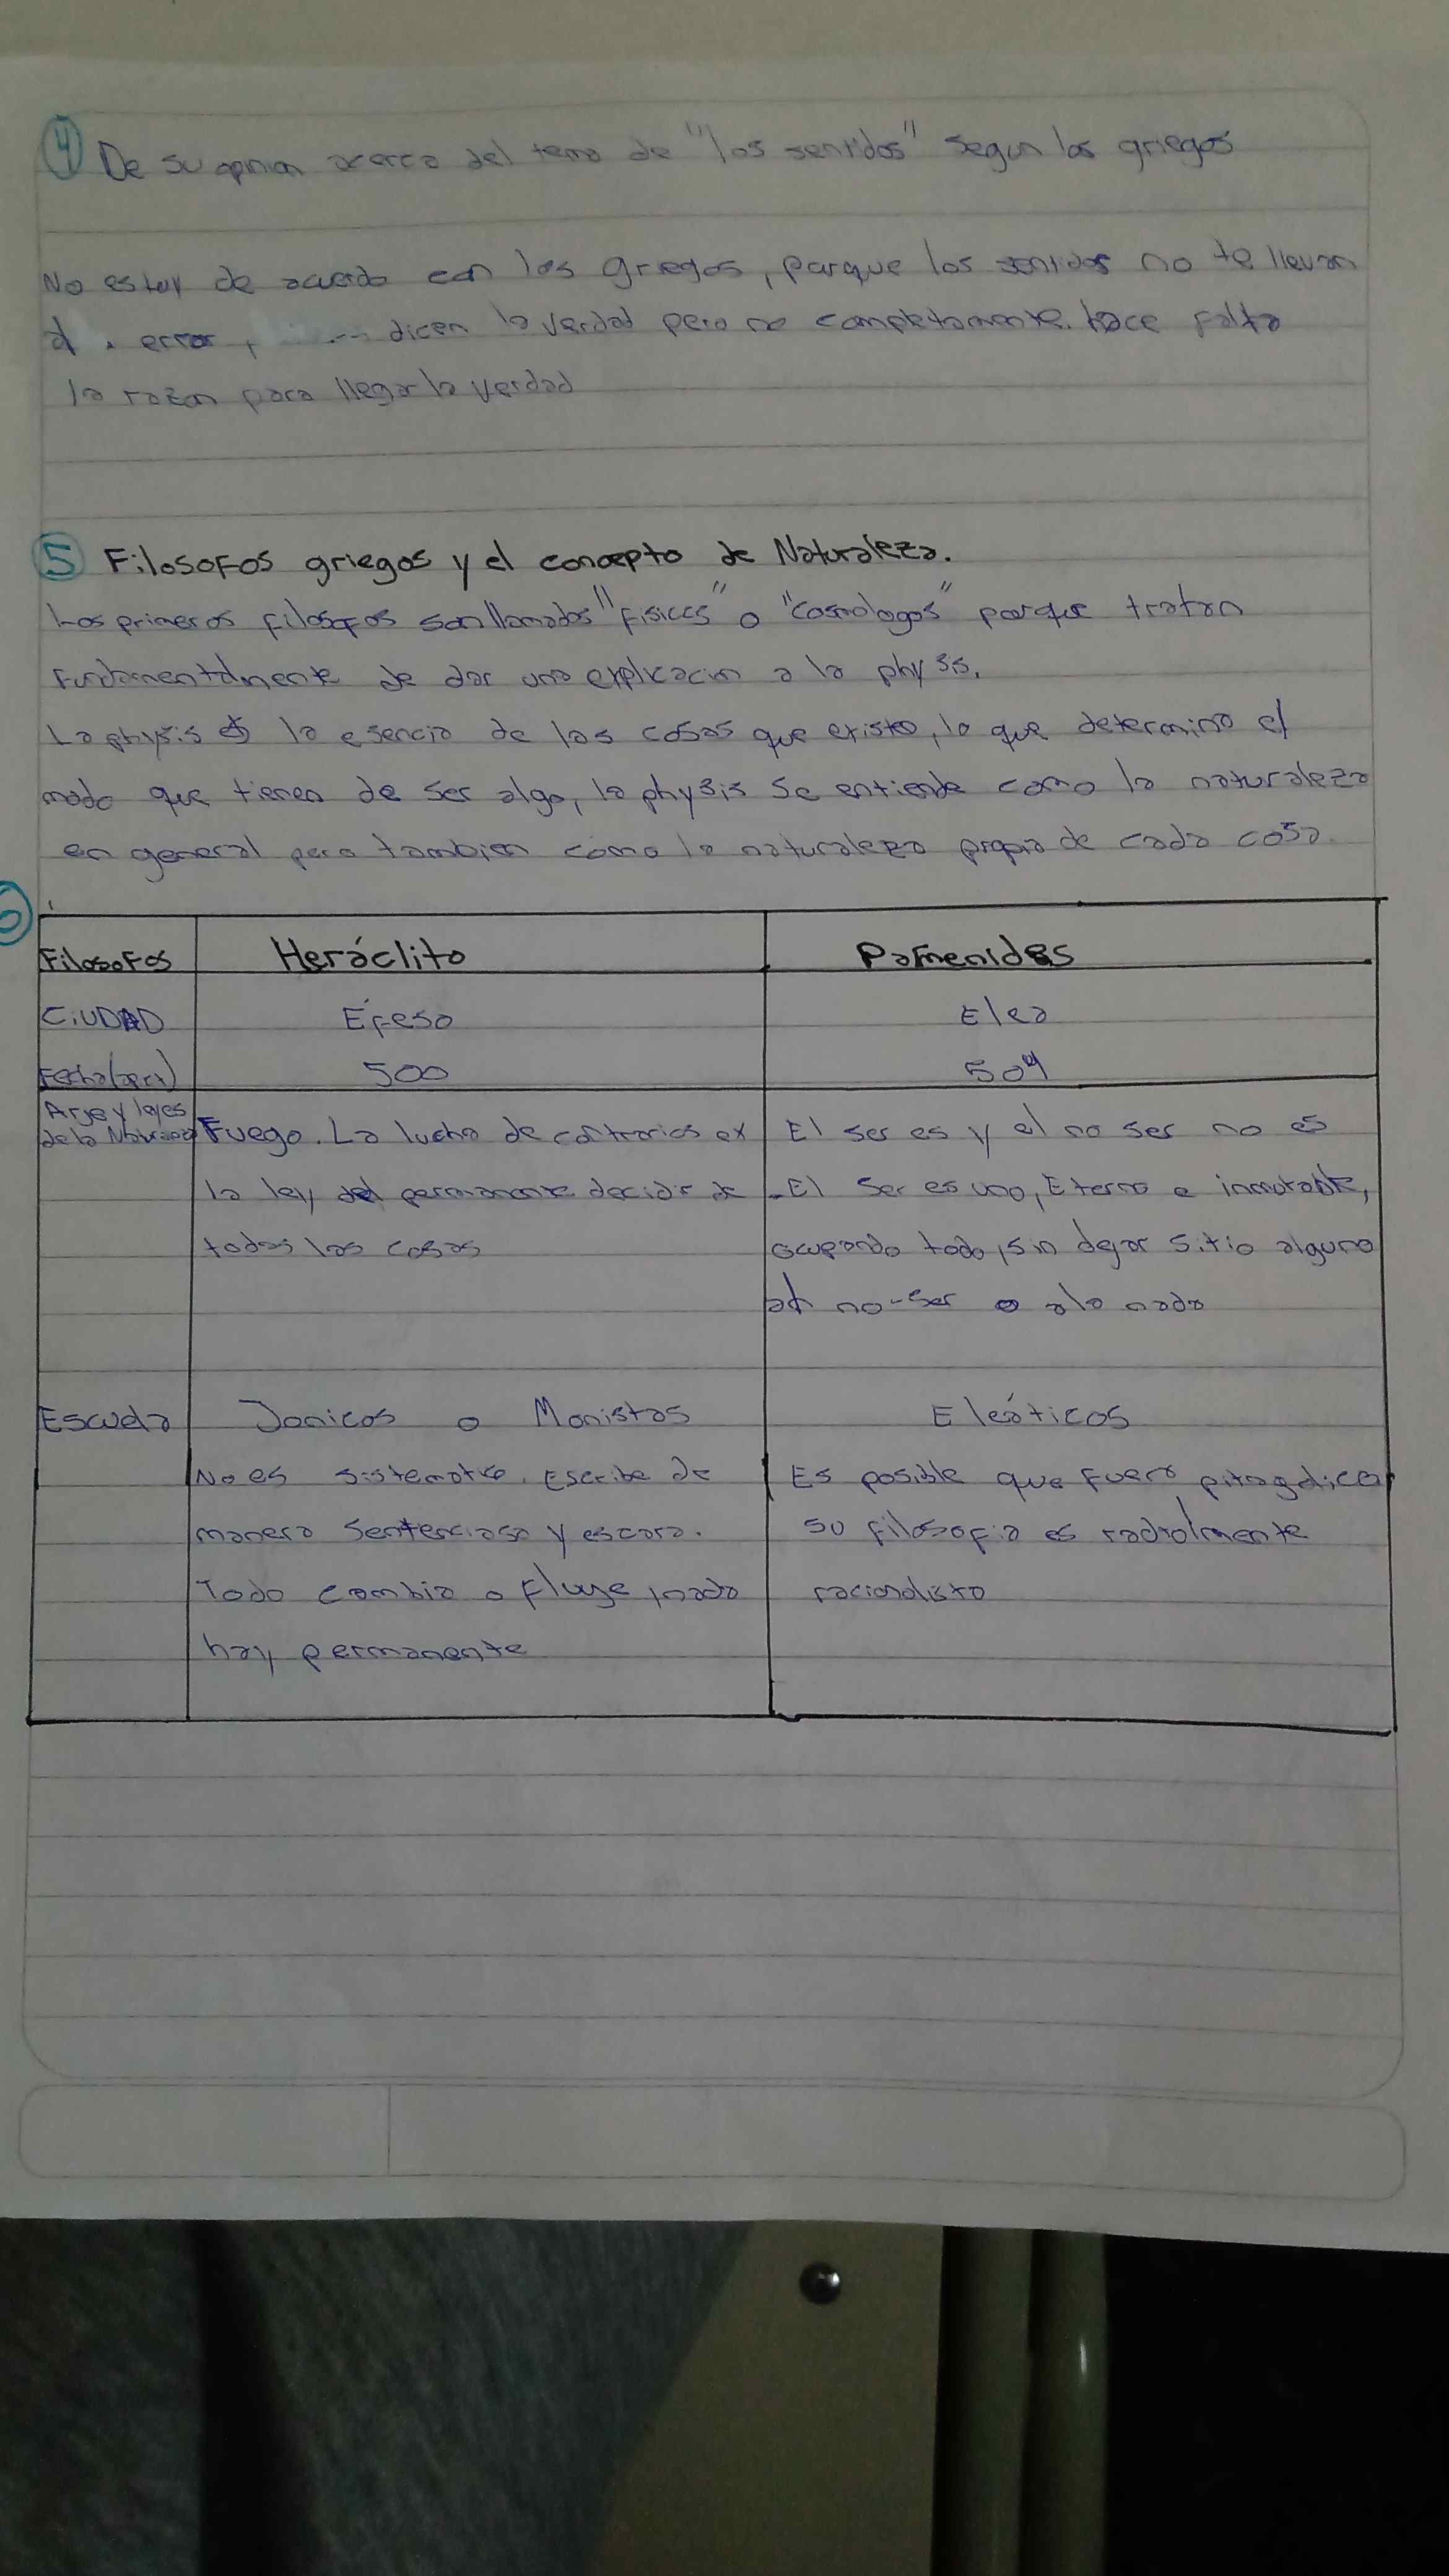 4 De su opnion acerca del tema de "los sentidos" segun los griegos
No estoy de acuerdo con los griegos, porque los sentidos no te llevan
error, dicen la verdad pero no completamente. hace falta
la razon para llegar la verdad
5 Filosofos griegos y el concepto de Naturaleza.
Los primeros filosofos son llamados "fisicos" o "cosmologos" porque tratan
fundamentalmente de dar una explicacion a la physis.
La physis es la esencia de las cosas que existe, lo que determina el
modo que tienen de ser algo, la physis se entiende como la naturaleza
en general pero tambien como la naturaleza propia de cada cosa.
Filosofos Heráclito Pamenides
CiUDAD Éfeso Elea
Fecha 500 504
Arje y leyes
de la Fuego. La lucha de contrarios es El ser es y el no ser no es
la ley del permanente decidir de - El Ser es uno, Eterno e inmutable,
todas las cosas ocupando todo, sin dejar sitio alguno
al no-ser o a la nada
Escuela Jonicos o Monistas Eleáticos
No es sistematico. Escribe de Es posible que fuera
manera sentenciosa y su filosofia es
Todo cambia o fluye, nada racionalista
hay permanente